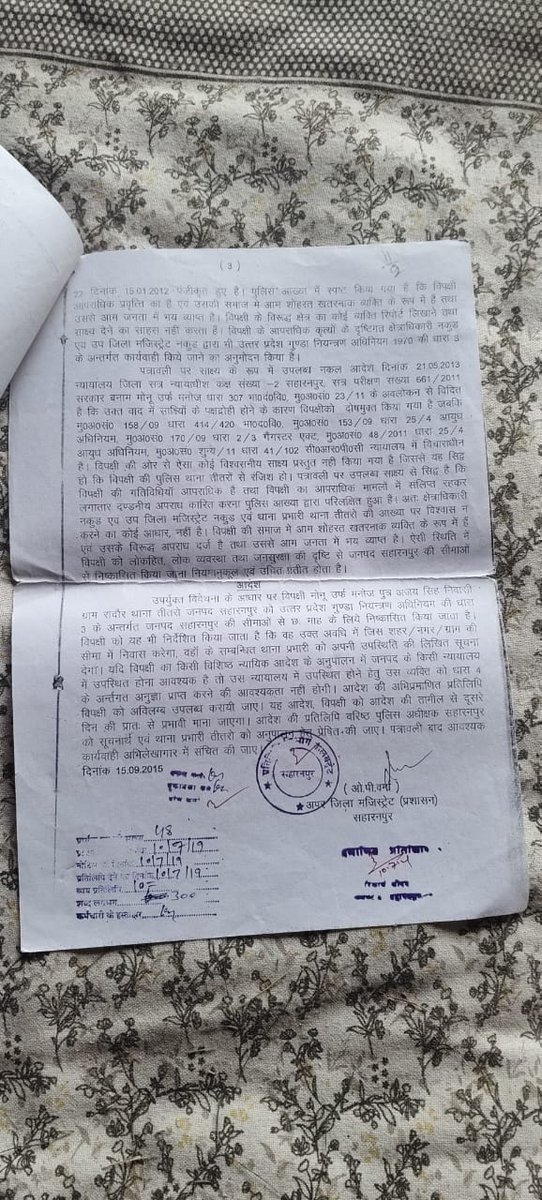 ( 3 )
22 दिनांक 15.01.2012 पंजीकृत हुए है। पुलिस आख्या में स्पष्ट किया गया है कि विपक्षी
आपराधिक प्रवृत्ति का है एवं उसकी समाज मे आम शोहरत खतरनाक व्यक्ति के रूप में है तथा
उससे आम जनता में भय व्याप्त है। विपक्षी के विरूद्ध क्षेत्र का कोई व्यक्ति रिपोर्ट लिखाने तथा
साक्ष्य देने का साहस नही करता है। विपक्षी के आपराधिक कृत्यों के दृष्टिगत क्षेत्राधिकारी नकुड
एवं उप जिला मजिस्ट्रेट नकुड द्वारा भी उत्तर प्रदेश गुण्डा नियन्त्रण अधिनियम 1970 की धारा 3
के अन्तर्गत कार्यवाही किये जाने का अनुमोदन किया है।
पत्रावली पर साक्ष्य के रूप में उपलब्ध नकल आदेश दिनांक 21.05.2013
न्यायालय जिला सत्र न्यायाधीश कक्ष संख्या -2 सहारनपुर, सत्र परीक्षण संख्या 661/2011
सरकार बनाम मोनू उर्फ मनोज धारा 307 भा0दं0वि0, मु0अ0सं0 23/11 के अवलोकन से विदित
है कि उक्त वाद में साक्षियों के पक्षद्रोही होने के कारण विपक्षीको दोषमुक्त किया गया है जबकि
मु0अ0सं0 158/09 धारा 414/420 भा0द0वि0, मु0अ0सं0 153/09 धारा 25/4 आयुध
अधिनियम, मु0अ0सं0 170/09 धारा 2/3 गैंगस्टर एक्ट, मु0अ0सं0 48/2011 धारा 25/4
आयुध अधिनियम, मु0अ0सं0 शुन्य/11 धारा 41/102 सी0आर0पी0सी न्यायालय में विचाराधीन
है। विपक्षी की ओर से ऐसा कोई विश्वसनीय साक्ष्य प्रस्तुत नही किया गया है जिससे यह सिद्ध
हो कि विपक्षी की पुलिस थाना तीतरो से रंजिश हो। पत्रावली पर उपलब्ध साक्ष्य से सिद्ध है कि
विपक्षी की गतिविधियाँ आपराधिक है तथा विपक्षी का आपराधिक मामलों में संलिप्त रहकर
लगातार दण्डनीय अपराध कारित करना पुलिस आख्या द्वारा परिलक्षित हुआ है। अतः क्षेत्राधिकारी
नकुड एवं उप जिला मजिस्ट्रेट नकुड एवं थाना प्रभारी थाना तीतरो की आख्या पर विश्वास न
करने का कोई आधार, नहीं है। विपक्षी की समाज मे आम शोहरत खतरनाक व्यक्ति के रूप में हैं
एवं उसके विरूद्ध अपराध दर्ज है तथा उससे आम जनता में भय व्याप्त है। ऐसी स्थिति में
विपक्षी को लोकहित, लोक व्यवस्था तथा जनसुरक्षा की दृष्टि से जनपद सहारनपुर की सीमाओं
से निष्कासित किया जाना नियमानुकूल एवं उचित प्रतीत होता है।
आदेश
उपर्युक्त विवेचना के आधार पर विपक्षी मोनू उर्फ मनोज पुत्र अजय सिंह निवासी
ग्राम राढौर थाना तीतरो जनपद सहारनपुर को उत्तर प्रदेश गुण्डा नियन्त्रण अधिनियम की धारा
3 के अन्तर्गत जनपद सहारनपुर की सीमाओं से छः माह के लिये निष्कासित किया जाता है।
विपक्षी को यह भी निर्देशित किया जाता है कि वह उक्त अवधि में जिस शहर/नगर/ग्राम की
सीमा में निवास करेगा, वहाँ के सम्बन्धित थाना प्रभारी को अपनी उपस्थिति की लिखित सूचना
देगा। यदि विपक्षी का किसी विशिष्ट न्यायिक आदेश के अनुपालन में जनपद के किसी न्यायालय
में उपस्थित होना आवश्यक है तो उस न्यायालय में उपस्थित होने हेतु उस व्यक्ति को धारा 4
के अर्न्तगत अनुज्ञा प्राप्त करने की आवश्यकता नहीं होगी। आदेश की अभिप्रमाणित प्रतिलिपि
विपक्षी को अविलम्ब उपलब्ध करायी जाए। यह आदेश, विपक्षी को आदेश की तामील से दूसरे
दिन की प्रातः से प्रभावी माना जाएगा। आदेश की प्रतिलिपि वरिष्ठ पुलिस अधीक्षक सहारनपुर
को सूचनार्थ एवं थाना प्रभारी तीतरो को अनुपालन हेतु प्रेषित की जाए। पत्रावली बाद आवश्यक
कार्यवाही अभिलेखागार में संचित की जाए।
दिनांक 15.09.2015
सहारनपुर
( ओ.पी.वर्मा )
अपर जिला मजिस्ट्रेट (प्रशासन)
सहारनपुर
48
10/7/19
10/7/19
प्रतिलिपि देने का दिनांक 10/7/19
10/-
शब्द लगभग 300
कर्मचारी के हस्ताक्षर